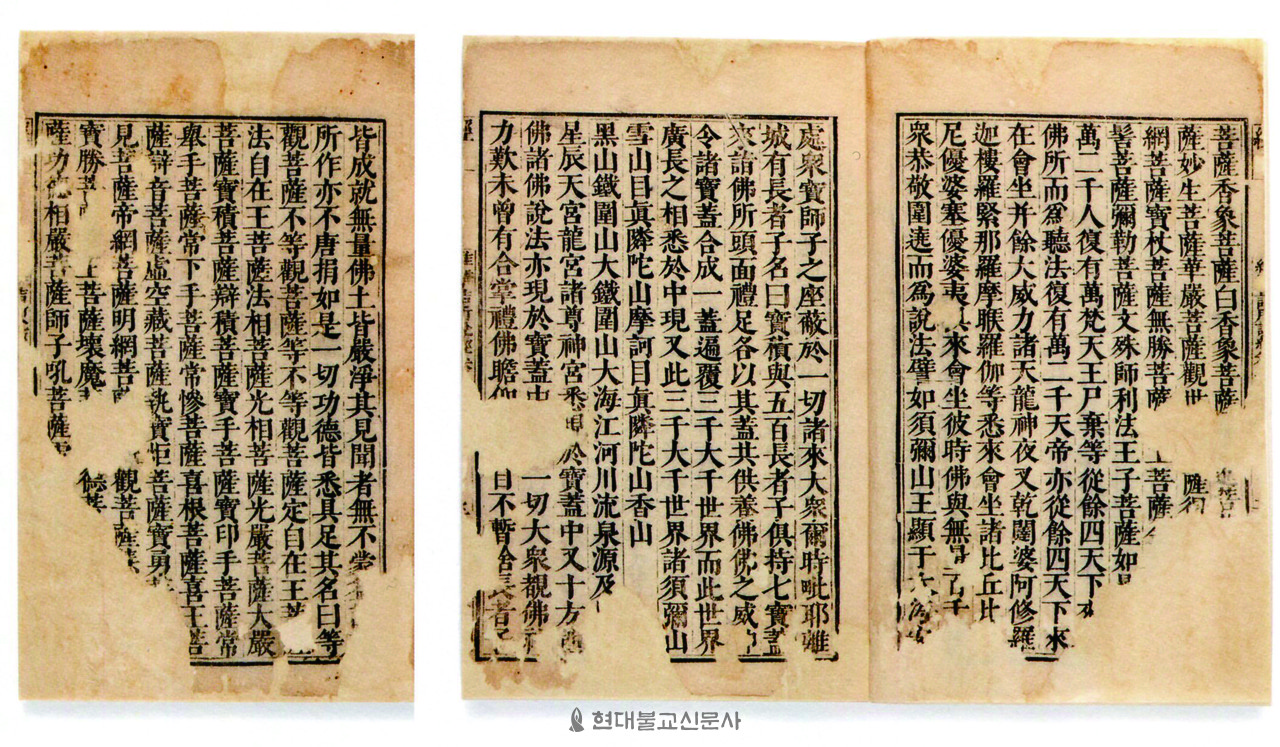 皆成就無量佛土皆嚴淨其見聞者無不蒙
所作亦不唐捐如是一切功德皆悉具足其名曰等
觀菩薩不等觀菩薩等不等觀菩薩定自在王菩
法自在王菩薩法相菩薩光相菩薩光嚴菩薩大嚴
菩薩寶積菩薩辯積菩薩寶手菩薩寶印手菩薩常
舉手菩薩常下手菩薩常慘菩薩喜根菩薩喜王菩
薩辯音菩薩虛空藏菩薩執寶炬菩薩寶勇
見菩薩帝網菩薩明網菩 觀菩薩
寶勝 菩薩壞魔 德菩
薩功德相嚴菩薩師子吼菩薩
菩薩香象菩薩白香象菩薩
薩妙生菩薩華嚴菩薩觀世
網菩薩寶杖菩薩無勝菩薩 菩薩
髻菩薩彌勒菩薩文殊師利法王子菩薩如
萬二千人復有萬梵天王尸棄等從餘四天下
佛所而為聽法復有萬二千天帝亦從餘四天下來
在會坐并餘大威力諸天龍神夜叉乾闥婆阿修羅
迦樓羅緊那羅摩睺羅伽等悉來會坐諸比丘比
尼優婆塞優婆夷俱來會坐彼時佛與無
眾恭敬圍遶而為說法譬如須彌山王顯于大海
處眾寶師子之座蔽於一切諸來大眾爾時毗耶離
城有長者子名曰寶積與五百長者子俱持七寶蓋
來詣佛所頭面禮足各以其蓋共供養佛佛之威
令諸寶蓋合成一蓋遍覆三千大千世界而此世界
廣長之相悉於中現又此三千大千世界諸須彌山
雪山目眞隣陀山摩訶目眞隣陀山香山
黑山鐵圍山大鐵圍山大海江河川流泉源及
星辰天宮龍宮諸尊神宮悉現於寶蓋中又十方
佛諸佛說法亦現於寶蓋中 一切大眾覩佛
力歎未曾有合掌禮佛瞻仰 目不暫捨長者子
현대불교신문사